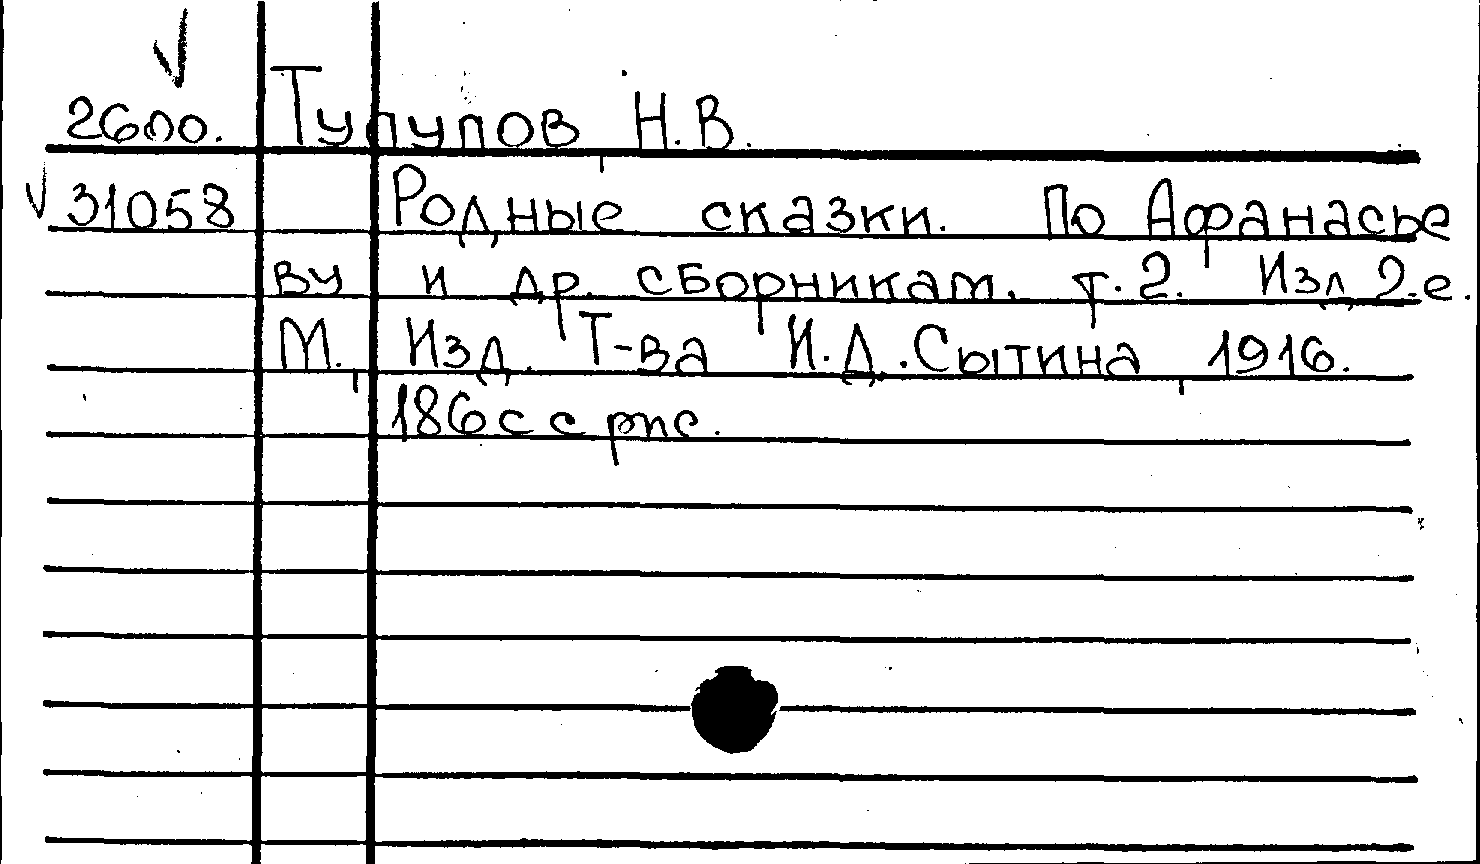 2600. Тупупов Н.В.
31058 Родные сказки. По Афанасье
ву и др. сборникам. т.2. Изд 2-е.
М., Изд. Т-ва И.Д. Сытина, 1916.
186 с с рис.